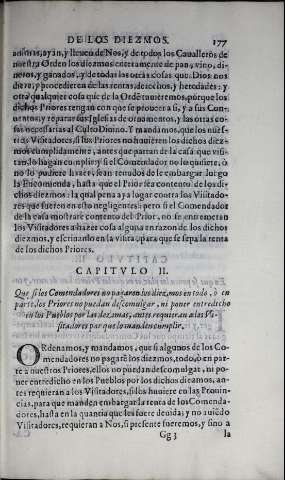 DE LOS DIEZMOS. 177
animas, ayan, y lleuen de Nos, y de todos los Caualleros de
nuestra Orden los diezmos enteramente de pan, vino, di-
neros, y ganados, y de todas las otras cosas que Dios nos
diere, y procedieren de las rentas, derechos, y heredades: y
otra qualquiere cosa que de la Ordẽ tuuieremos, porque los
dichos Priores tengan con que se prouean a si, y a sus Con-
uentos, y reparar sus Iglesias de ornamentos, y las otras co-
sas necessarias al Culto Diuino. Y mandamos, que los nues-
tros Visitadores, si los Priores no huuieren los dichos diez-
mos cumplidamente, antes que partan de la casa que visi-
tan, lo hagan cumplir, y si el Comendador no lo quisiere, ò
no lo pudiere hazer, sean tenudos de le embargar luego
la Encomienda, hasta que el Prior sea contento de los di-
chos diezmos: la qual pena aya lugar contra los Visitado-
res que fueren en esto negligentes: pero si el Comendador
de la casa mostrare contento del Prior, no se entremetan
los Visitadores a hazer cosa alguna en razon de los dichos
diezmos, y escriuanlo en la visita, para que se sepa la renta
de los dichos Priores.
CAPITVLO II.
Que si los Comendadores no pagaren los diezmos en todo, ò en
parte, los Priores no puedan descomulgar, ni poner entredicho
en los Pueblos por las dezimas, antes requieran a los Vi-
sitadores par que lo manden cumplir.
ORdenamos, y mandamos, que si algunos de los Co-
mendadores no pagarẽ los diezmos, en todo, ò en par-
te a nuestros Priores, ellos no puedan descomulgar, ni po-
ner entredicho en los Pueblos por los dichos diezmos, an-
tes requieran a los Visitadores, si los huuiere en las Prouin-
cias, para que manden embargar la renta de los Comenda-
dores, hasta en la quantia que les fuere deuida; y no auiẽdo
Visitadores, requieran a Nos, si presente fueremos, y sino a
Gg 3 la